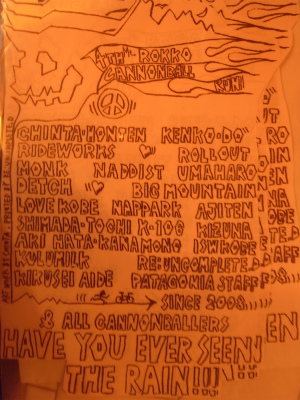 4TH ROKKO
CANNONBALL
RUN!
CHINTA·HONTEN KENKO-DO
RIDEWORKS ROLLOUT
MONK NADDIST UMAHARO
DETCH BIG MOUNTAIN
LOVE KOBE NAPPARK AJITEN
SHIMADA·TOCHI K·106 KIZUNA
AKI HATA·KANAMONO ISWKOBE
KULUMILK RE:UNCOMPLETED
KIKUSEI AIDE PATAGONIA STAFF
SINCE 2008,,,,
& ALL CANNONBALLERS
HAVE YOU EVER SEEN
THE RAIN!!!